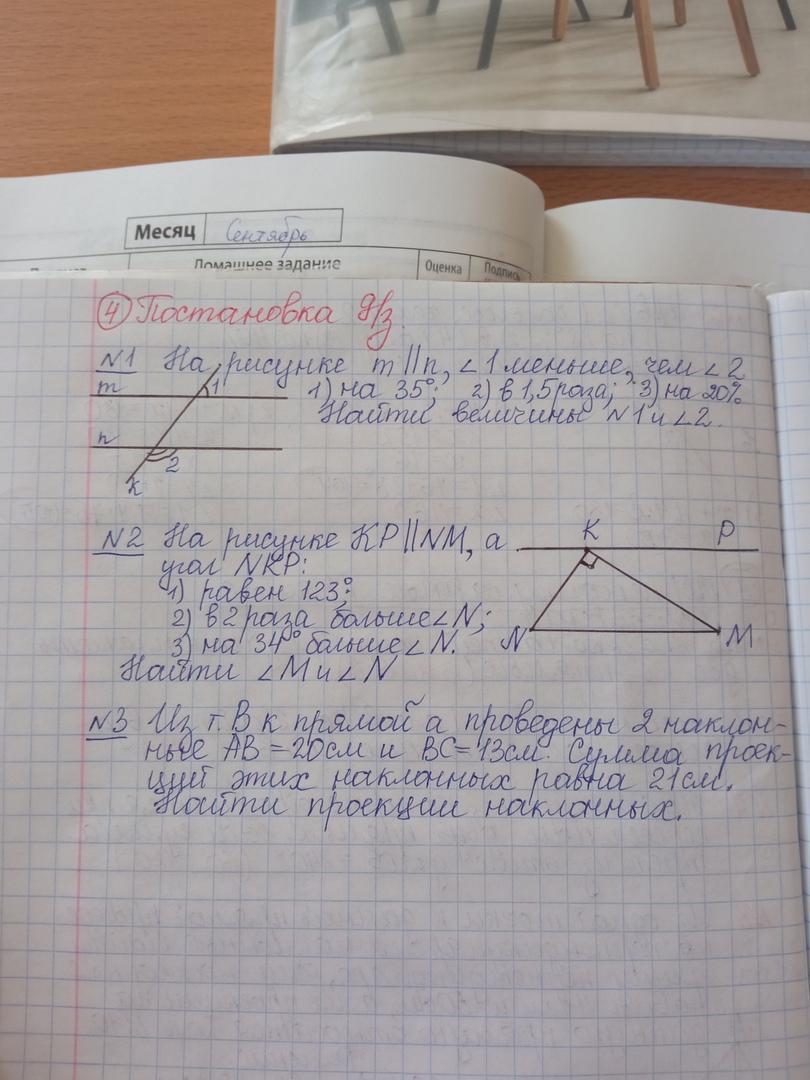 Месяц Сентябрь
Домашнее задание Оценка Подпись
④ Постановка д/з
N1 На рисунке m || n, ∠1 меньше, чем ∠2
m 1 1) на 35°; 2) в 1,5 раза; 3) на 20%
Найти величины N1 и ∠2.
n
2
K
N2 На рисунке KP || NM, а K P
угол NKP:
1) равен 123°;
2) в 2 раза больше ∠N;
3) на 34° больше ∠N. N M
Найти ∠M и ∠N
N3 Из т. В к прямой а проведены 2 наклон-
ные АВ = 20см и ВС = 13см. Сумма проек-
ций этих наклонных равна 21см.
Найти проекции наклонных.